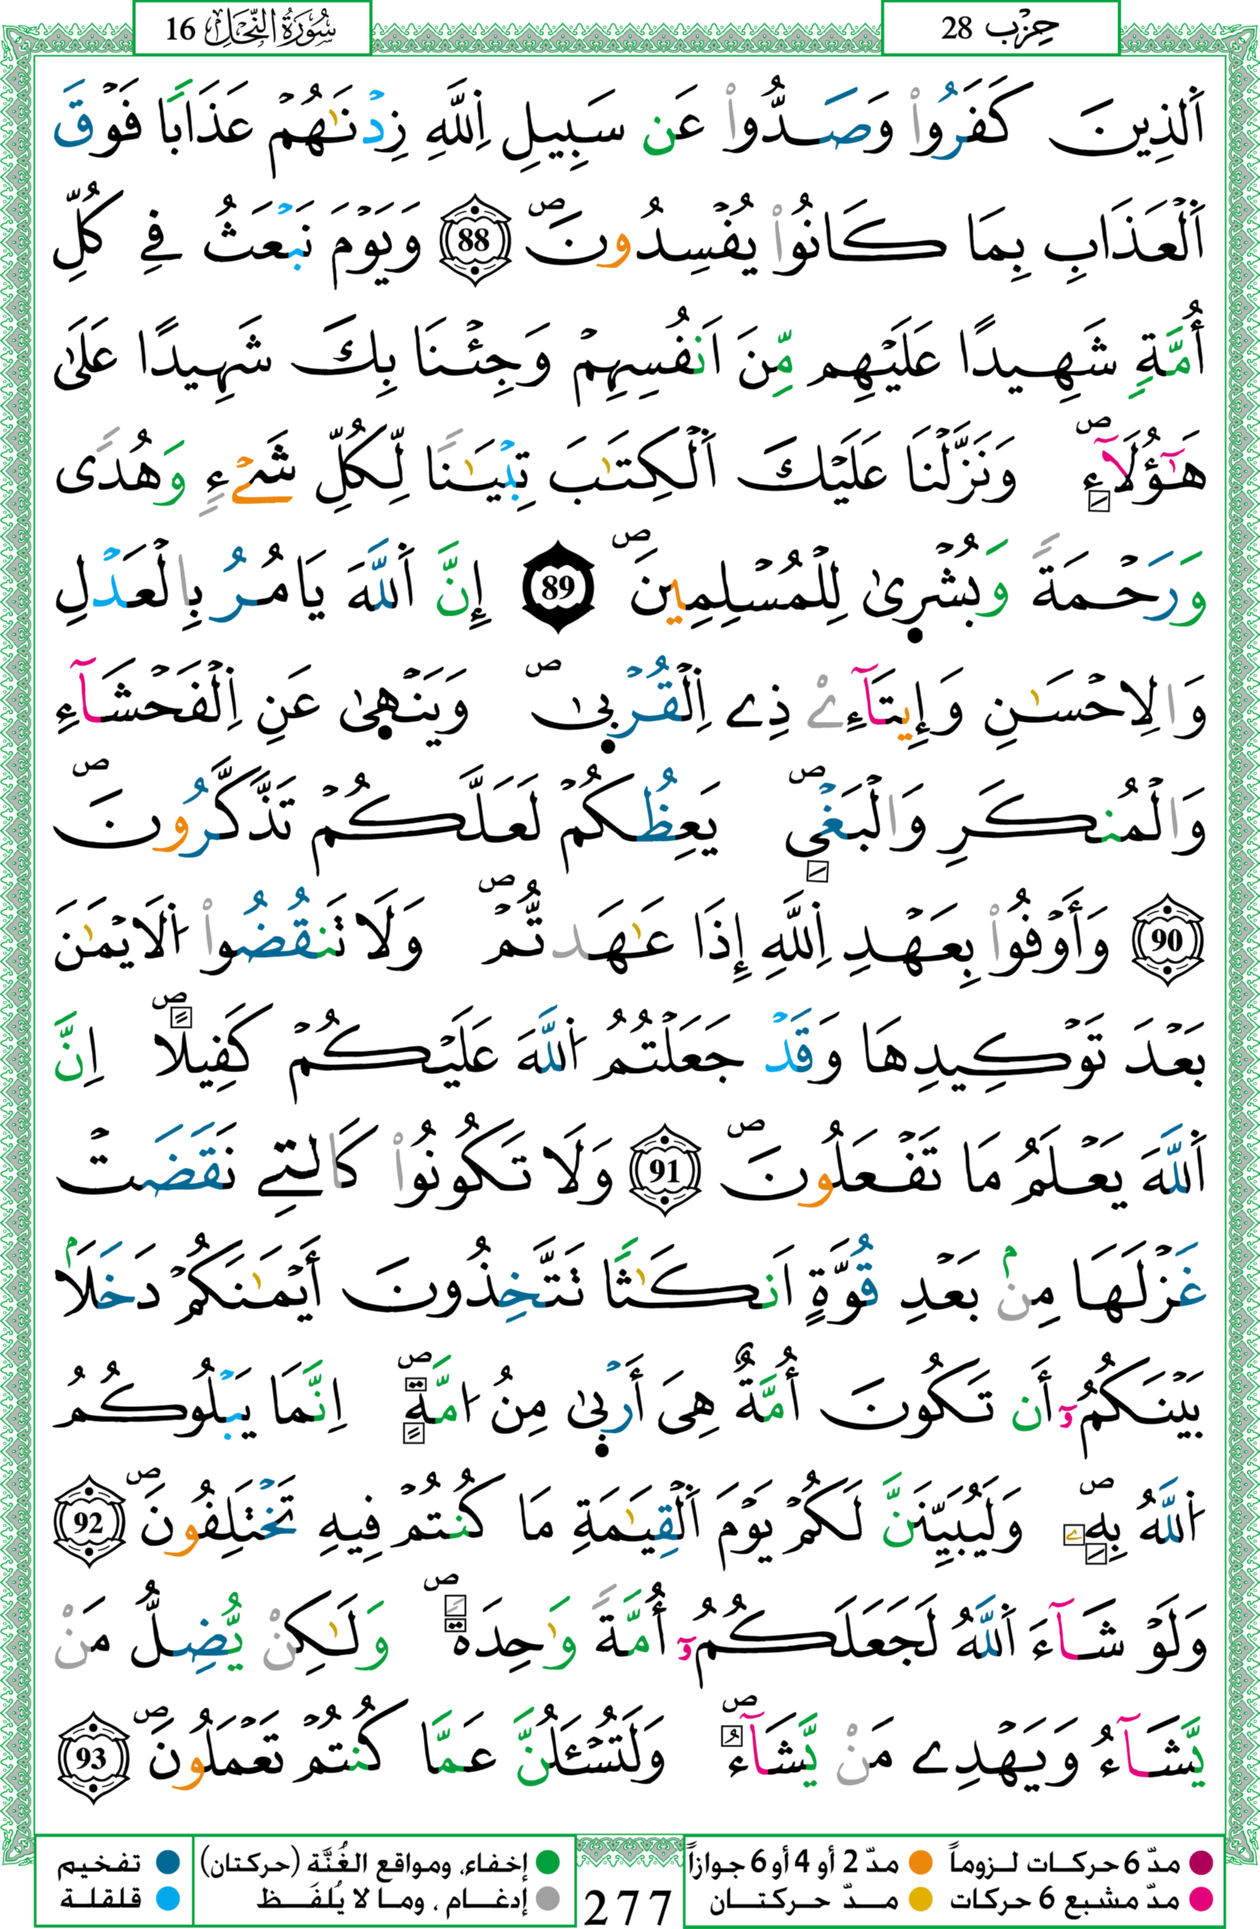 سُورَةُ النَّحْلِ 16
حِزْب 28
اَ۬لذِينَ كَفَرُواْ وَصَدُّواْ عَن سَبِيلِ اِ۬للَّهِ زِدْنَٰهُمْ عَذَاباٗ فَوْقَ
اَ۬لْعَذَابِ بِمَا كَانُواْ يُفْسِدُونَۖ 88 وَيَوْمَ نَبْعَثُ فِے كُلِّ
أُمَّةٖ شَهِيداً عَلَيْهِم مِّنَ اَنفُسِهِمْ وَجِئْنَا بِكَ شَهِيداً عَلَىٰ
هَٰٓؤُلَآءِۖ وَنَزَّلْنَا عَلَيْكَ اَ۬لْكِتَٰبَ تِبْيَٰناٗ لِّكُلِّ شَےْءٖ وَهُدىٗ
وَرَحْمَةٗ وَبُشْر۪ىٰ لِلْمُسْلِمِينَۖ 89 إِنَّ اَ۬للَّهَ يَامُرُ بِالْعَدْلِ
وَالِاحْسَٰنِ وَإِيتَآءِےْ ذِے اِ۬لْقُرْب۪ىٰۖ وَيَنْه۪ىٰ عَنِ اِ۬لْفَحْشَآءِ
وَالْمُنكَرِ وَالْبَغْيِۖ يَعِظُكُمْ لَعَلَّكُمْ تَذَّكَّرُونَۖ
90 وَأَوْفُواْ بِعَهْدِ اِ۬للَّهِ إِذَا عَٰهَدتُّمْۖ وَلَا تَنقُضُواْ اُ۬لَايْمَٰنَ
بَعْدَ تَوْكِيدِهَا وَقَدْ جَعَلْتُمُ اُ۬للَّهَ عَلَيْكُمْ كَفِيلاًۖ اِنَّ
اَ۬للَّهَ يَعْلَمُ مَا تَفْعَلُونَۖ 91 وَلَا تَكُونُواْ كَالتِے نَقَضَتْ
غَزْلَهَا مِنۢ بَعْدِ قُوَّةٍ اَنكَٰثاٗ تَتَّخِذُونَ أَيْمَٰنَكُمْ دَخَلاَۢ
بَيْنَكُمُۥٓ أَن تَكُونَ أُمَّةٌ هِيَ أَرْب۪ىٰ مِنُ ا۟مَّةٍۖ اِنَّمَا يَبْلُوكُمُ
اُ۬للَّهُ بِهِۦۖ وَلَيُبَيِّنَنَّ لَكُمْ يَوْمَ اَ۬لْقِيَٰمَةِ مَا كُنتُمْ فِيهِ تَخْتَلِفُونَۖ 92
وَلَوْ شَآءَ اَ۬للَّهُ لَجَعَلَكُمُۥٓ أُمَّةٗ وَٰحِدَةٗۖ وَلَٰكِنْ يُّضِلُّ مَنْ
يَّشَآءُ وَيَهْدِے مَنْ يَّشَآءُۖ وَلَتُسْـَٔلُنَّ عَمَّا كُنتُمْ تَعْمَلُونَۖ 93
مدّ 6 حركات لـزوماً
مدّ 2 أو 4 أو 6 جوازاً
مدّ مشبع 6 حركات
مـدّ حـركتــان
إخفاء، ومواقع الغُنَّة (حركتان)
إدغـام ، ومـا لا يُلفَـظ
تفخيم
قلقلة
277